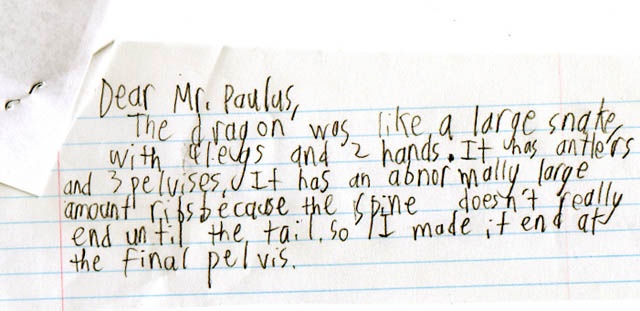 Dear Mr. Paulus,
The dragon was like a large snake
with 4 leugs and 2 hands. It has antlers
and 3 pelvises. It has an abnormally large
amount ribs because the spine doesn't really
end until the tail. so I made it end at
the final pelvis.